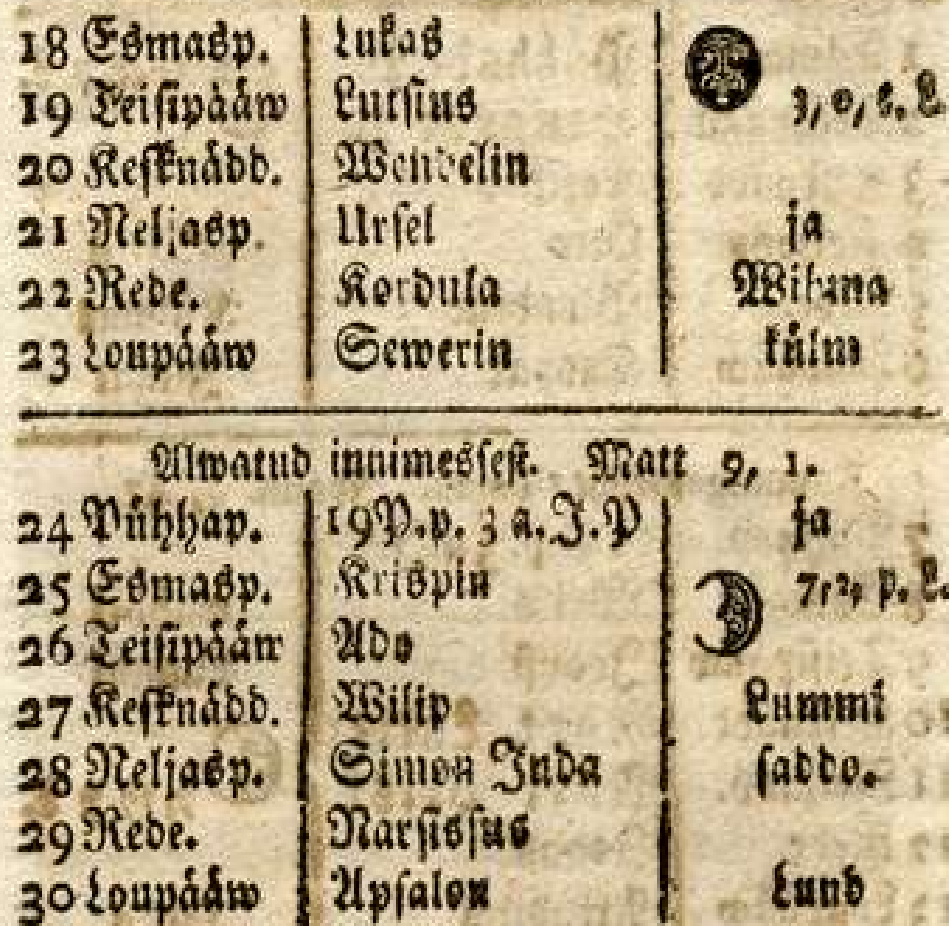 18 Esmasp. Lukas
19 Teisipääw Lutsius 3, 0, e. L.
20 Kesknädd. Wendelin
21 Neljasp. Ursel ja
22 Rede. Kordula Wihana
23 Loupääw Sewerin külm
Alwatud innimessest. Matt 9, 1.
24 Pühhap. 19 P. p. 3 a. J. P ja
25 Esmasp. Krispin 7, 2, p. L.
26 Teisipääw Ado
27 Kesknädd. Wilip Lummi
28 Neljasp. Simon Juda saddo.
29 Rede. Narsissus
30 Loupääw Apsalon Lund